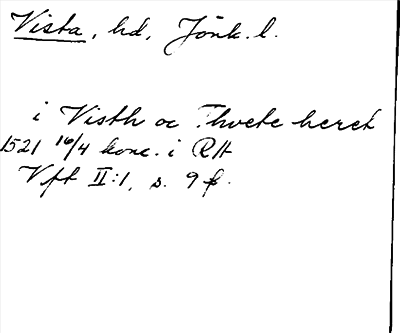 Vista, hd, Jönk. l.
i Visth oc Thvete heret
1521 16/4 konc. i RA
Vft II:1, s. 9 f.